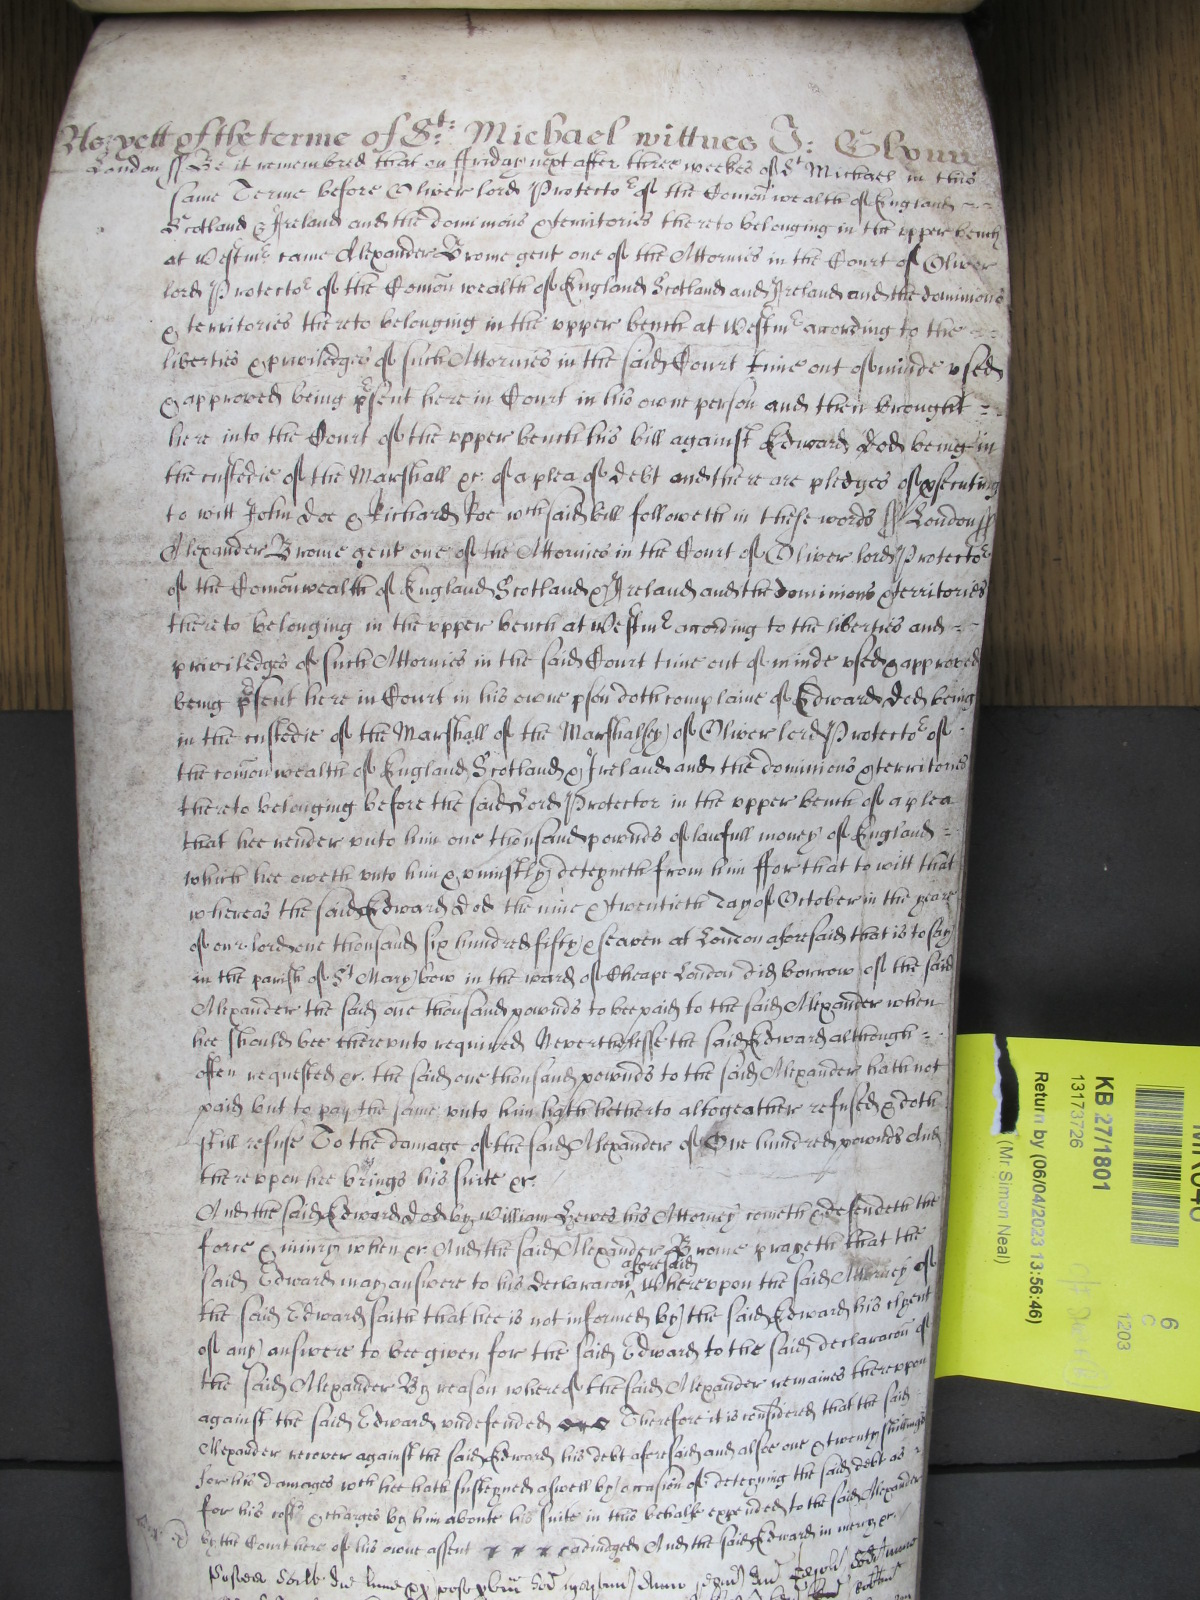 As yett of the terme of St: Michael wittnes J: Glynn
London ss Be it remembred that on ffriday next after three weekes of St Michael in this
same Terme before Oliver lord Protector of the Comon wealth of England
Scotland & Ireland and the dominions & territories thereto belonging in the upper bench
at Westmr came Alexander Brome gent one of the Attornies in the Court of Oliver
lord Protector of the Comon wealth of England Scotland and Ireland and the dominions
& territories thereto belonging in the upper bench at Westmr according to the
liberties & priviledges of such Attornies in the said Court time out of minde used
& approved being prsent here in Court in his owne person and then brought
here into the Court of the upper bench his bill against Edward Dod being in
the custodie of the Marshall &c. of a plea of debt and there are pledges of prsecuting
to witt John Doe & Richard Roe wch said bill followeth in these words ss London ss
Alexander Brome gent one of the Attornies in the Court of Oliver lord Protector
of the Comonwealth of England Scotland & Ireland and the dominions & territories
thereto belonging in the upper bench at Westmr according to the liberties and
priviledges of such Attornies in the said Court time out of minde used & approved
being prsent here in Court in his owne pson doth complaine of Edward Dod being
in the custodie of the Marshall of the Marshalsey of Oliver lord Protector of
the comon wealth of England Scotland & Ireland and the dominions & territories
thereto belonging before the said Lord Protector in the upper bench of a plea
that hee render unto him one thousand pownds of lawfull money of England
which hee oweth unto him & uniustly deteyneth from him ffor that to witt that
whereas the said Edward Dod the nine & twentieth day of October in the yeare
of our lord one thousand six hundred fifty & seaven at London aforesaid that is to say
in the parish of St Mary bow in the ward of Cheape London did borrow of the said
Alexander the said one thousand pownds to bee paid to the said Alexander when
hee should bee thereunto required Neverthelesse the said Edward although
often requested &c. the said one thousand pownds to the said Alexander hath not
paid but to pay the same unto him hath hetherto altogeather refused & doth
still refuse To the damage of the said Alexander of One hundred pownds And
thereupon hee brings his suite &c.
And the said Edward Dod by William Lewes his Attorney cometh & defendeth the
force & iniury when &c And the said Alexander Brome prayeth that the
said Edward may answere to his declaracon aforesaid Whereupon the said Attorney of
the said Edward saith that hee is not informed by the said Edward his clyent
of any answere to bee given for the said Edward to the said declaracon of
the said Alexander By reason whereof the said Alexander remaines thereupon
against the said Edward undefended Therefore it is considered that the said
Alexander recover against the said Edward his debt aforesaid and alsoe one & twenty shillings
for his damages wch hee hath susteyned aswell by occasion of deteyning the said debt as
for his costs & charges by him aboute his suite in this behalfe expended to the said Alexander
by the Court here of his owne assent adiudged And the said Edward in mercy &c.
Postea
KB 27/1801
13173726
Return by (06/04/2023 13:56:46)
(Mr Simon Neal)
6
C
1203